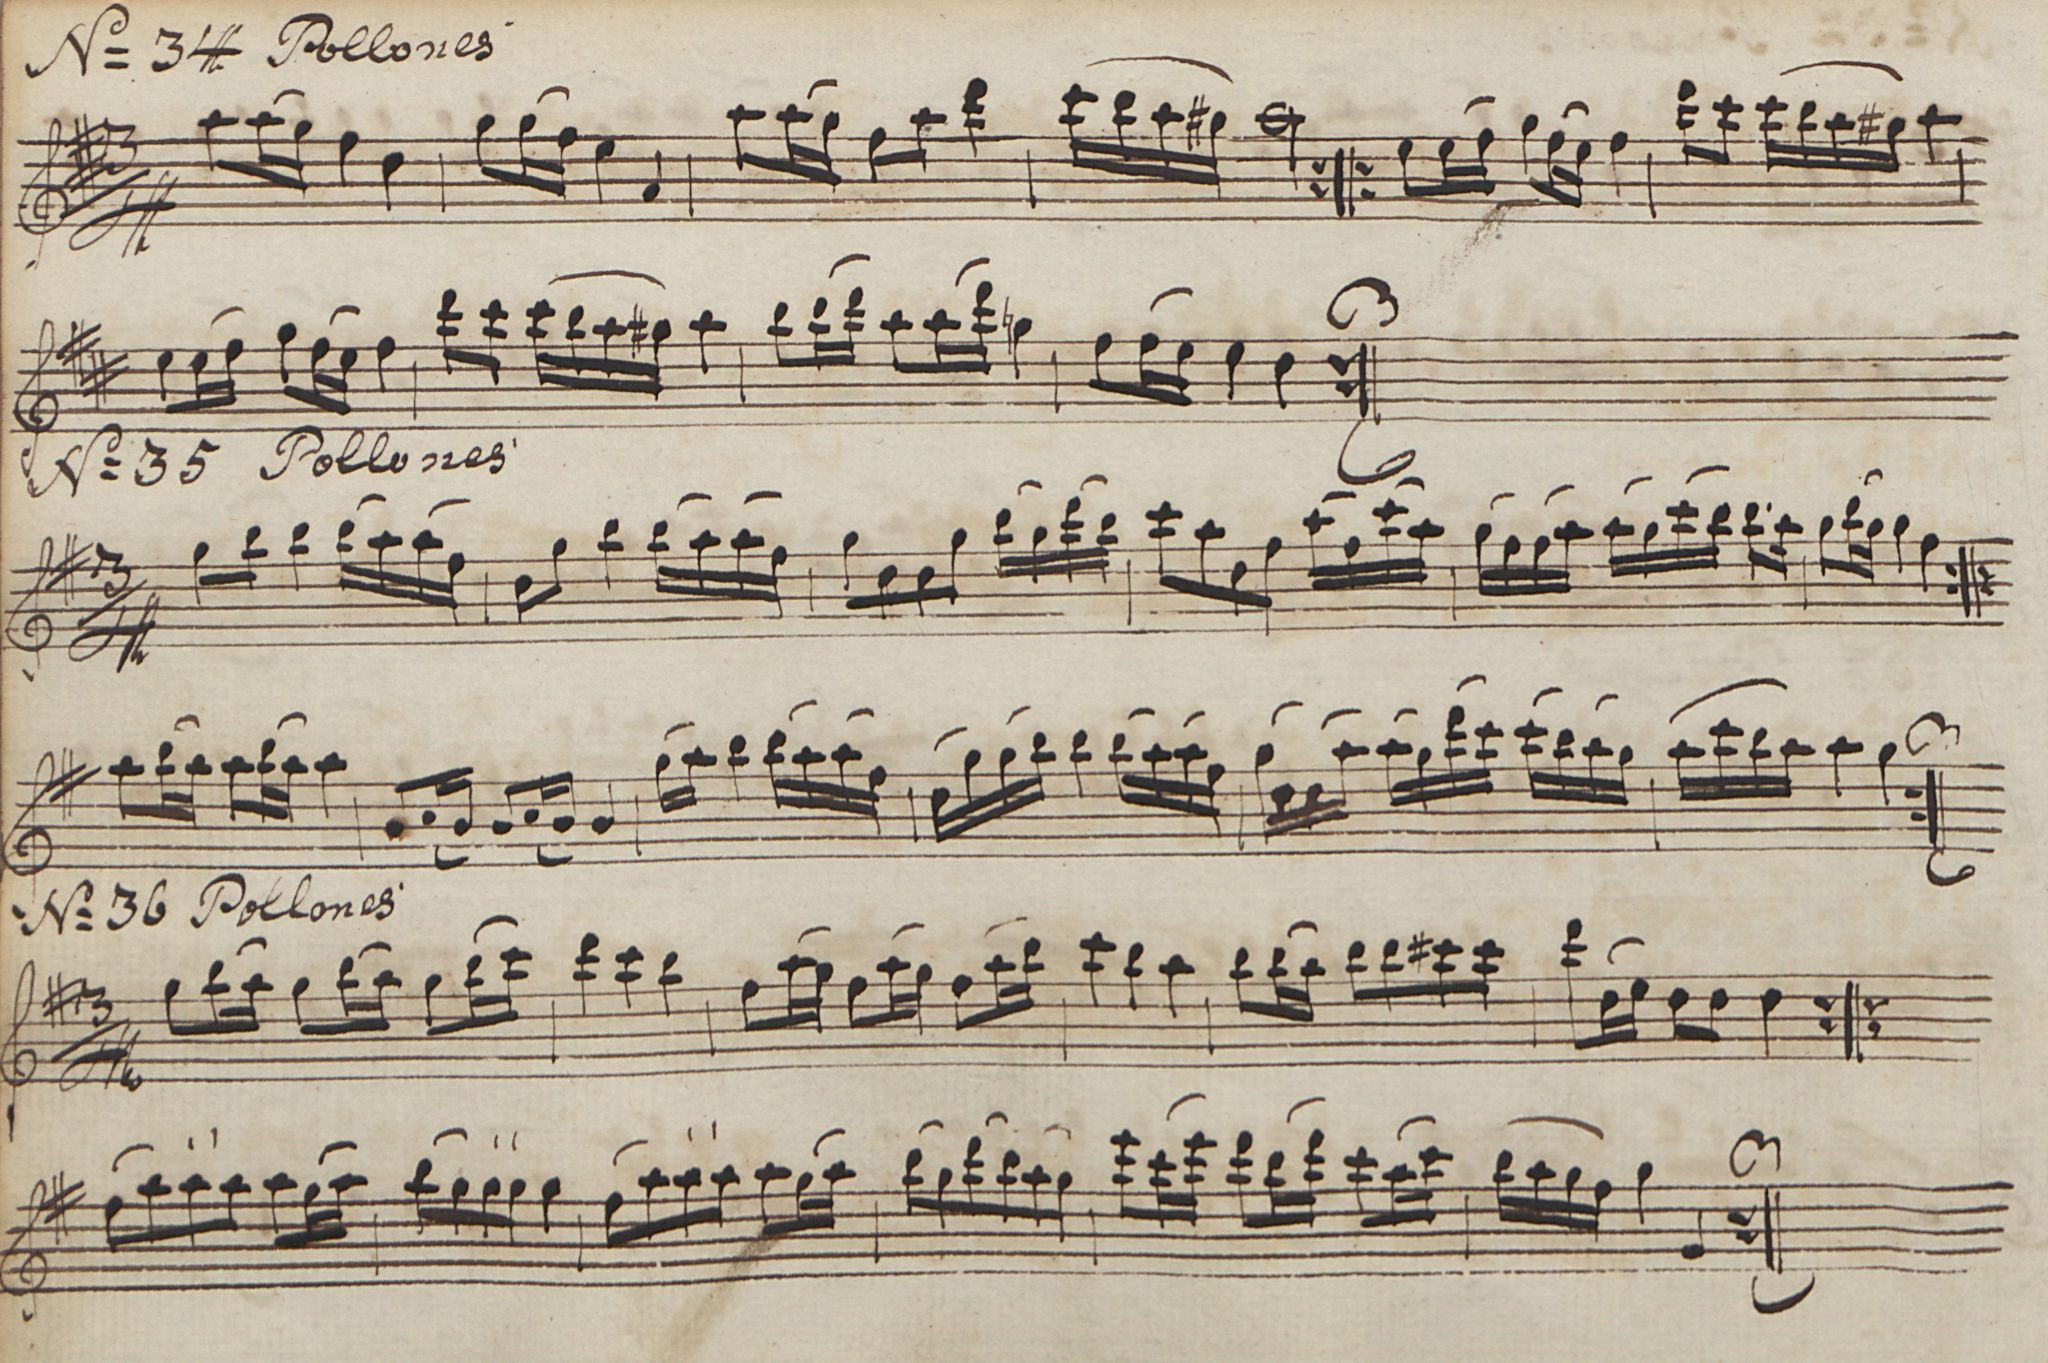 No= 34 Pollones
3
4
No= 35 Pollones
3
4
No= 36 Pollones
3
4